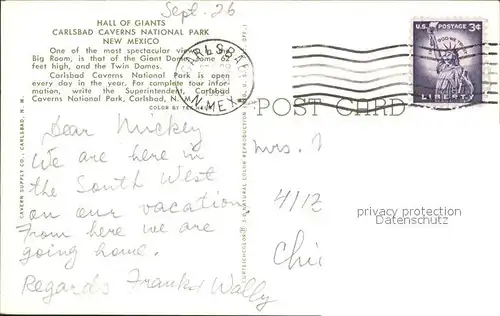 Sept. 26
HALL OF GIANTS
CARLSBAD CAVERNS NATIONAL PARK
NEW MEXICO
One of the most spectacular views in the
Big Room, is that of the Giant Dome, some 62
feet high, and the Twin Domes.
Carlsbad Caverns National Park is open
every day in the year. For complete tour infor-
mation, write the Superintendent, Carlsbad
Caverns National Park, Carlsbad, N. M.
COLOR BY
CARLSBAD
N. MEX.
U.S. POSTAGE 3¢
IN GOD WE TRUST
LIBERTY
POST CARD
Dear Mickey
We are here in
the South West
on our vacation
From here we are
going home.
Regards Frank & Wally
Mrs.
4112
Chi
CAVERN SUPPLY CO., CARLSBAD, N. M.
NATURAL COLOR REPRODUCTION
protection
Ansichtskartenversand.com